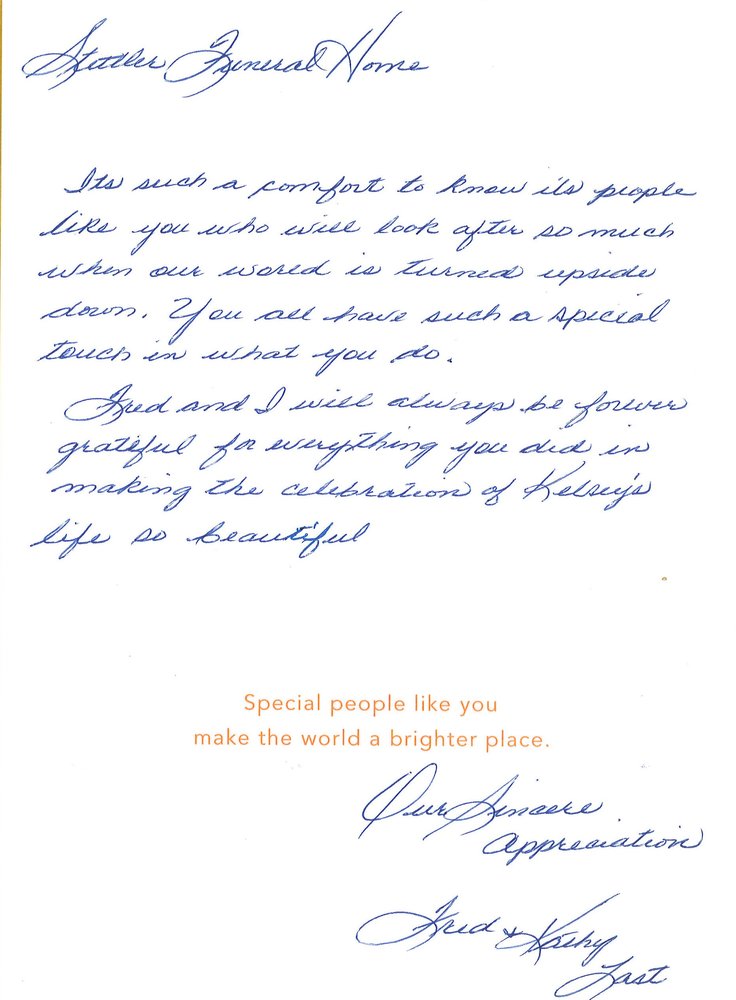 Stattler Funeral Home
Its such a comfort to know its people
like you who will look after so much
when our world is turned upside
down. You all have such a special
touch in what you do.
Fred and I will always be forever
grateful for everything you did in
making the celebration of Kelsey's
life so beautiful
Special people like you
make the world a brighter place.
Our Sincere
Appreciation
Fred & Kathy
Last